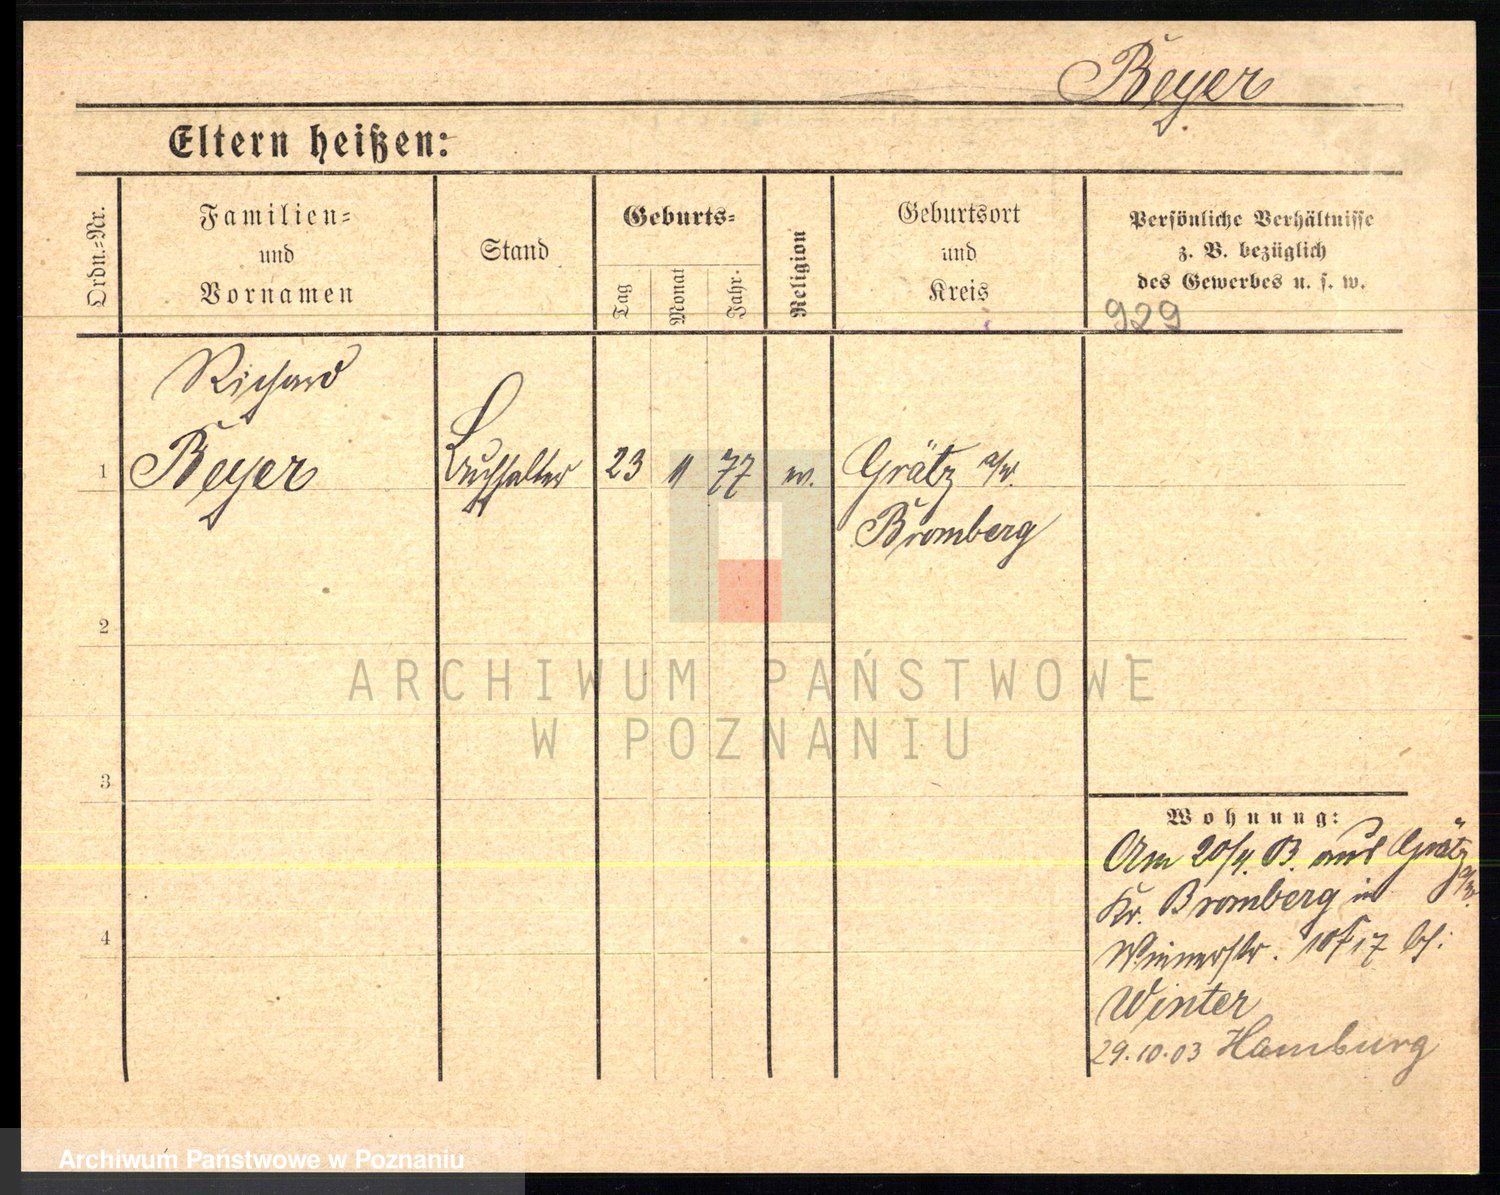 Beyer
Eltern heißen:
Ordn.=Nr.
Familien=
und
Vornamen
Stand
Geburts=
Tag
Monat
Jahr.
Religion
Geburtsort
und
Kreis
Persönliche Verhältnisse
z. B. bezüglich
des Gewerbes u. s. w.
929
Richard
1 Beyer Buchhalter 23 11 77 ev. Grätz a/W.
Bromberg
2
ARCHIWUM PAŃSTWOWE
W POZNANIU
3
Wohnung:
Am 20/4. 03. aus Grätz a/W.
4 Kr. Bromberg in
17 bei:
Winter
29.10.03 Hamburg
Archiwum Państwowe w Poznaniu